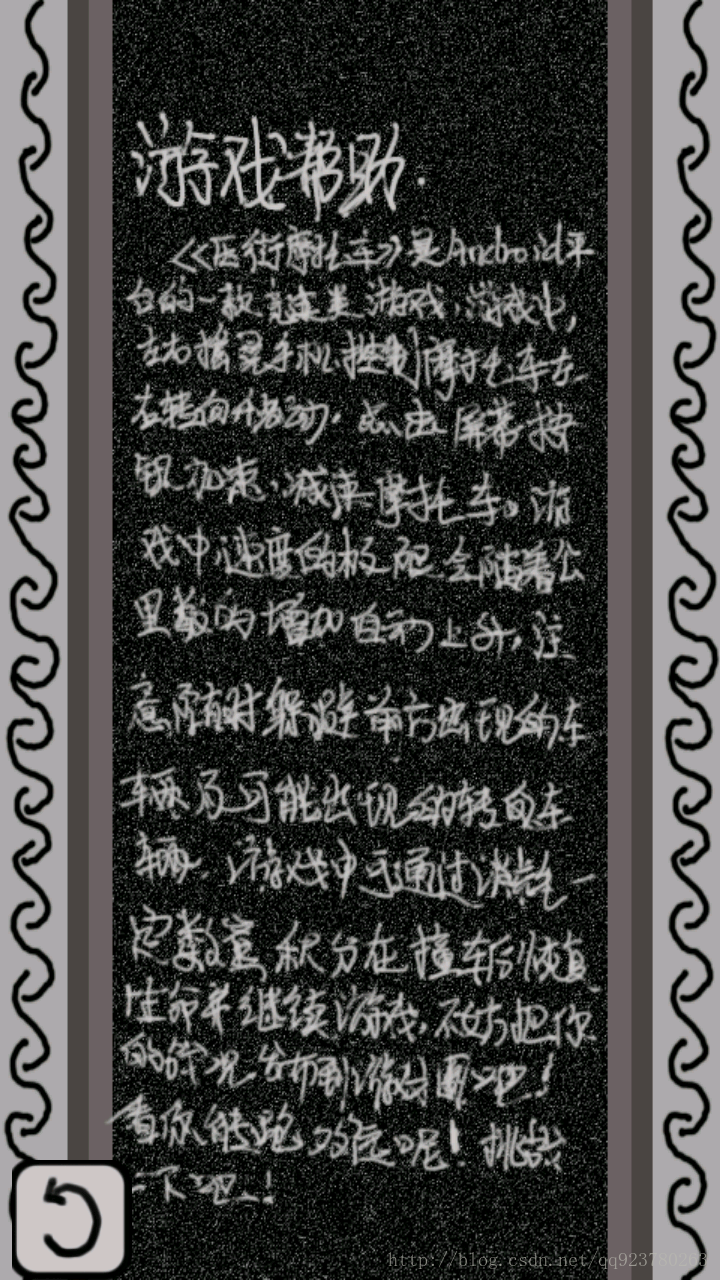 游戏帮助.
《医街摩托车》是Android平
台的一款竞速类游戏,游戏中,
左右摇晃手机控制摩托车左
右转向移动,点击屏幕按
钮加速,减速摩托车。游
戏中速度的极限会随着公
里数的增加自动上升,注
意随时躲避前方出现的车
辆及可能出现的转向车
辆.游戏中可通过消耗一
定数量积分在撞车后恢复
生命并继续游戏,不妨把你
的战况发布到微博圈吧!
看你能跑多远呢!挑战
一下吧!
http://blog.csdn.net/qq923780263